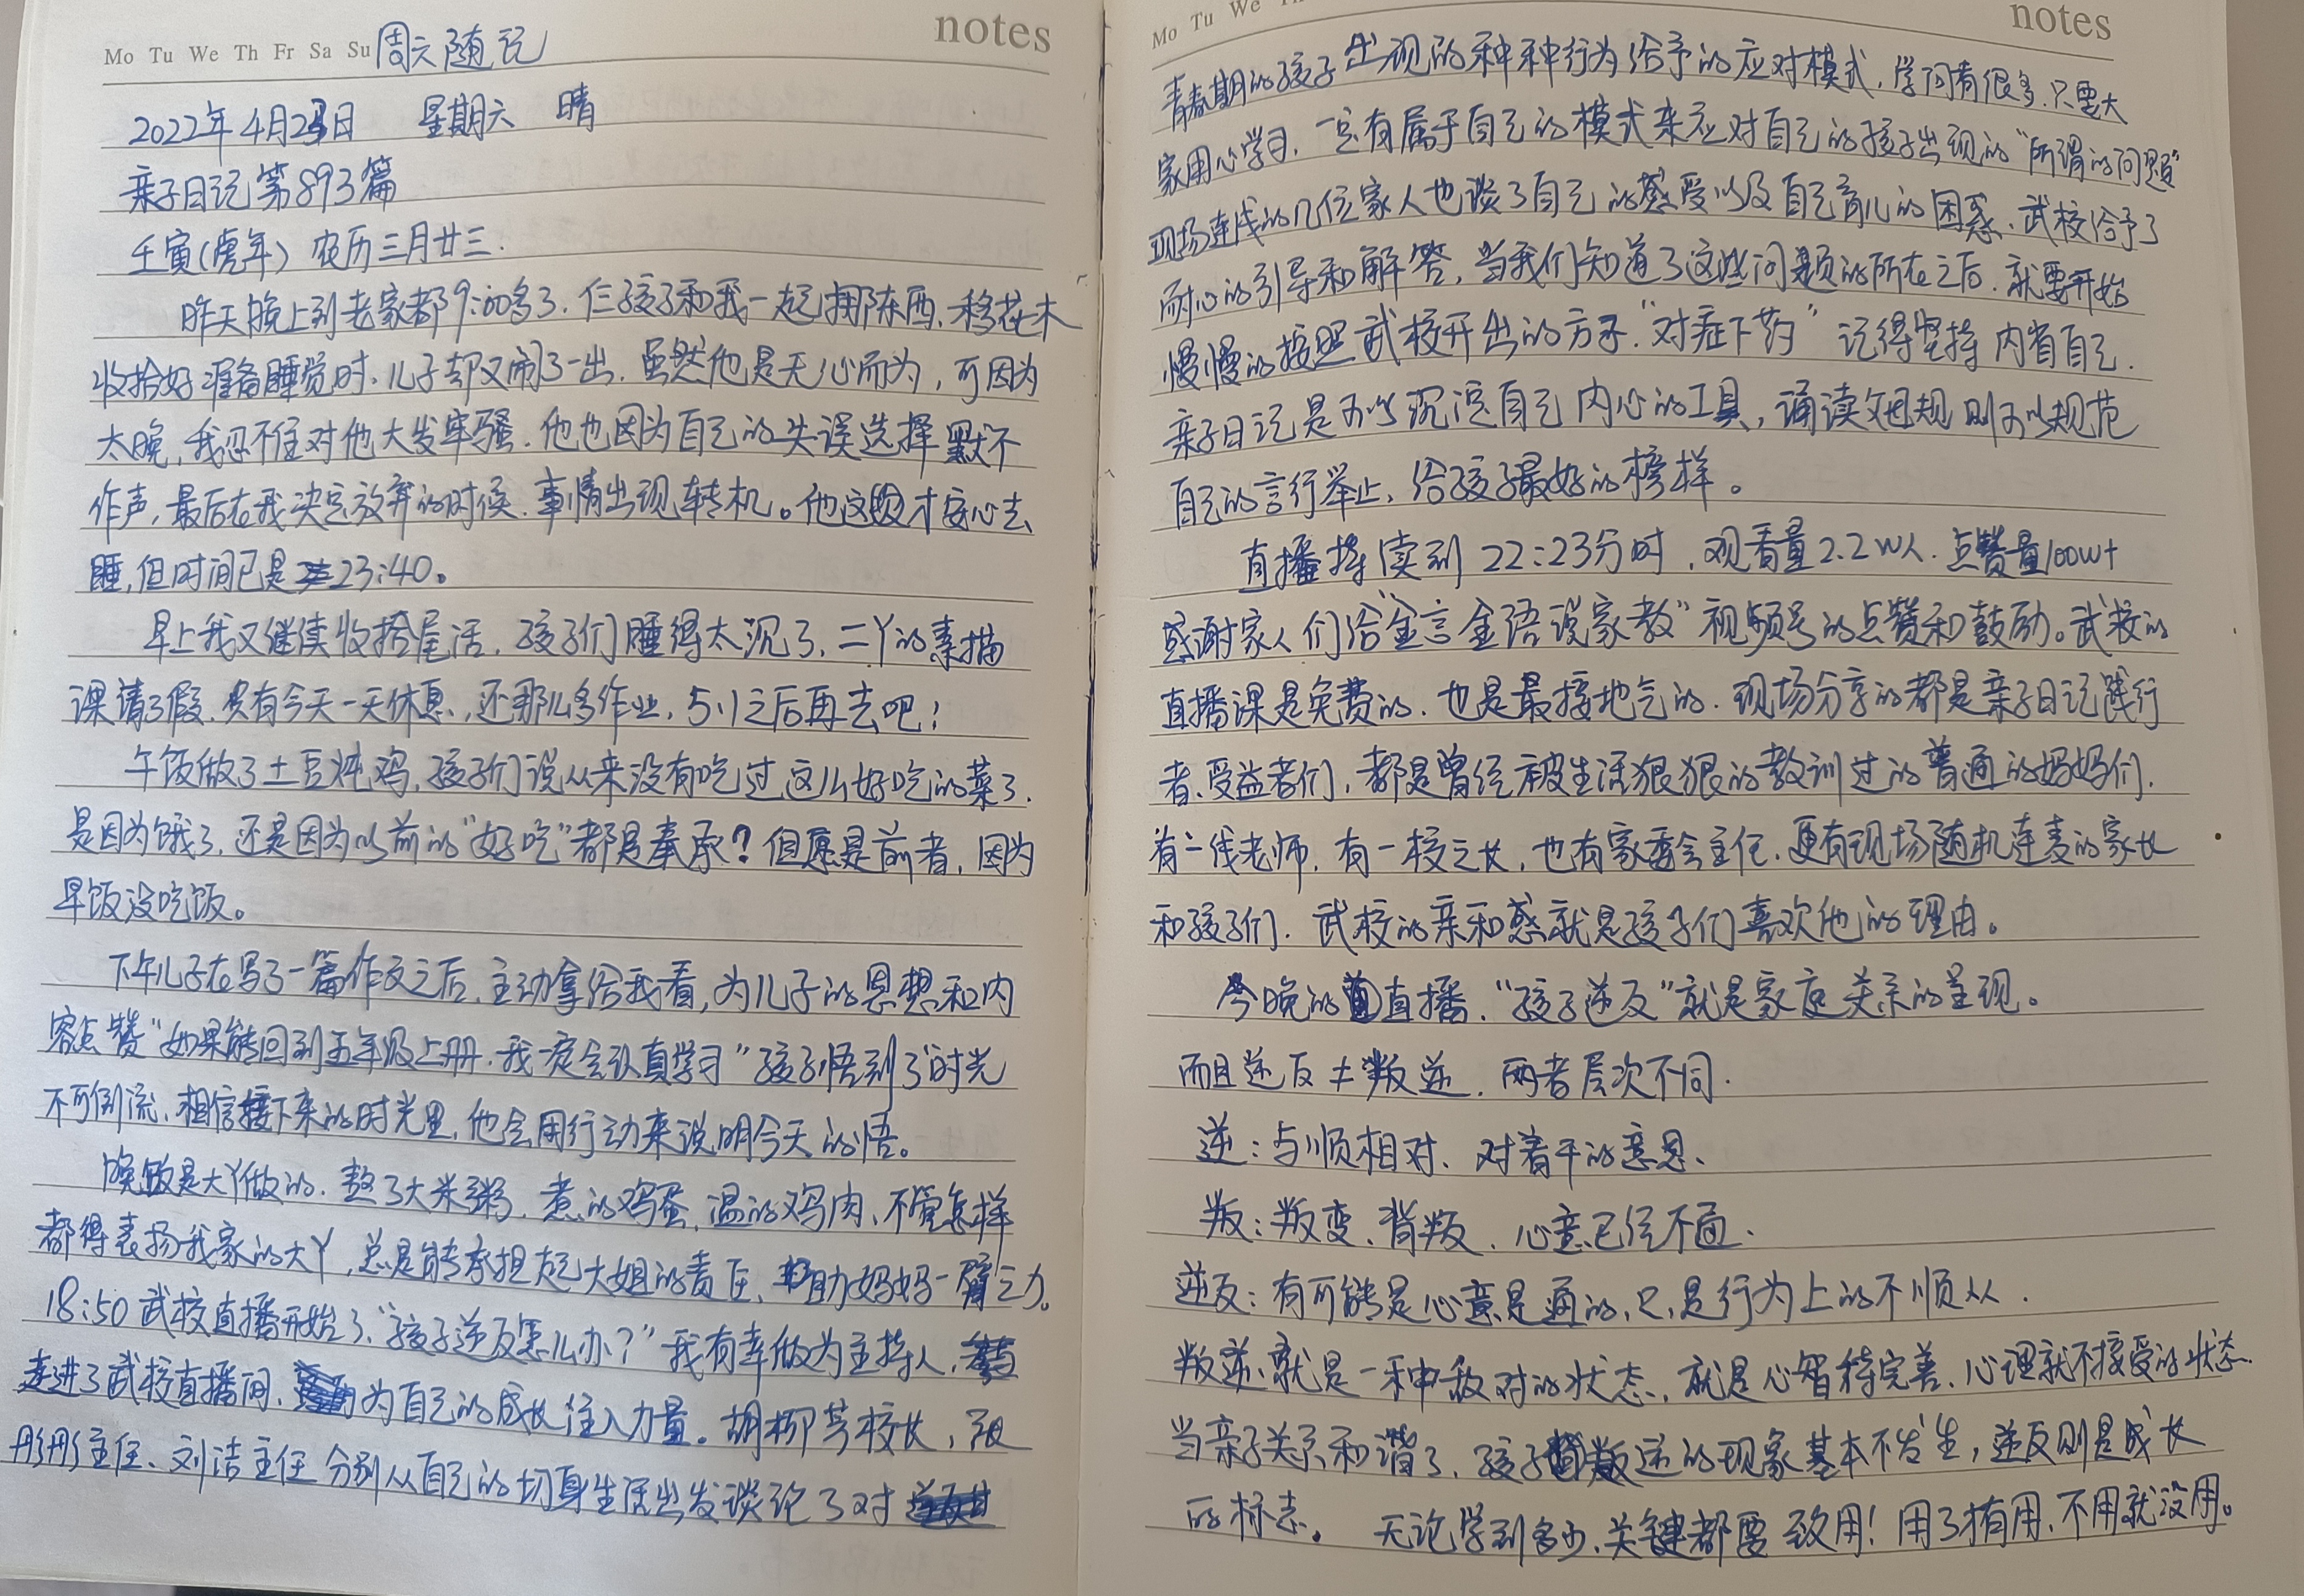 Mo Tu We Th Fr Sa Su 周六随记
notes
2022年4月23日 星期六 晴
亲子日记第893篇
壬寅(虎年) 农历三月廿三.
昨天晚上到老家都9:00多了.仨孩子和我一起挪东西、移花木
收拾好准备睡觉时.儿子却又闹了一出.虽然他是无心而为,可因为
太晚,我忍不住对他大发牢骚.他也因为自己的失误选择默不
作声,最后在我决定放弃的时候.事情出现转机。他这才安心去
睡,但时间已是23:40。
早上我又继续收拾尾活.孩子们睡得太沉了.二丫的素描
课请了假.只有今天一天休息,还那么多作业,5.1之后再去吧!
午饭做了土豆炖鸡.孩子们说从来没有吃过这么好吃的菜了.
是因为饿了.还是因为以前的“好吃”都是奉承?但愿是前者,因为
早饭没吃饭。
下午儿子在写了一篇作文之后.主动拿给我看,为儿子的思想和内
容点赞“如果能回到五年级上册.我一定会认真学习”孩子悟到了时光
不可倒流.相信接下来的时光里,他会用行动来说明今天的悟。
晚饭是大丫做的.熬了大米粥.煮的鸡蛋.温的鸡肉、不管怎样
都得表扬我家的大丫,总是能承担起大姐的责任、助妈妈一臂之力。
18:50武校直播开始了.“孩子逆反怎么办?”我有幸做为主持人,
走进了武校直播间、为自己的成长注入力量。胡柳芳校长,张
彤彤主任、刘洁主任分别从自己的切身生活出发谈论了对
Mo Tu We Th
notes
青春期的孩子出现的种种行为给予的应对模式.学问有很多.只要大
家用心学习.一定有属于自己的模式来应对自己的孩子出现的“所谓的问题”
现场连线的几位家人也谈了自己的感受以及自己育儿的困惑.武校给予了
耐心的引导和解答,当我们知道了这些问题的所在之后.就要开始
慢慢的按照武校开出的方子“对症下药”记得坚持内省自己.
亲子日记是可以沉淀自己内心的工具,诵读父母规则可以规范
自己的言行举止,给孩子最好的榜样。
直播持续到22:23分时,观看量2.2W人.点赞量100W+
感谢家人们给“金言金语说家教”视频号的点赞和鼓励。武校的
直播课是免费的.也是最接地气的.现场分享的都是亲子日记践行
者、受益者们,都是曾经被生活狠狠的教训过的普通的妈妈们.
有一线老师.有一校之长,也有家委会主任、更有现场随机连麦的家长
和孩子们.武校的亲和感就是孩子们喜欢他的理由。
今晚的直播.“孩子逆反”就是家庭关系的呈现。
而且逆反≠叛逆.两者层次不同.
逆:与顺相对、对着干的意思、
叛:叛变、背叛.心意已经不通.
逆反:有可能是心意是通的,只是行为上的不顺从.
叛逆:就是一种敌对的状态.就是心智待完善、心理就不接受的状态.
当亲子关系和谐了.孩子叛逆的现象基本不发生,逆反则是成长
的标志。无论学到多少、关键都要致用!用了才有用、不用就没用。